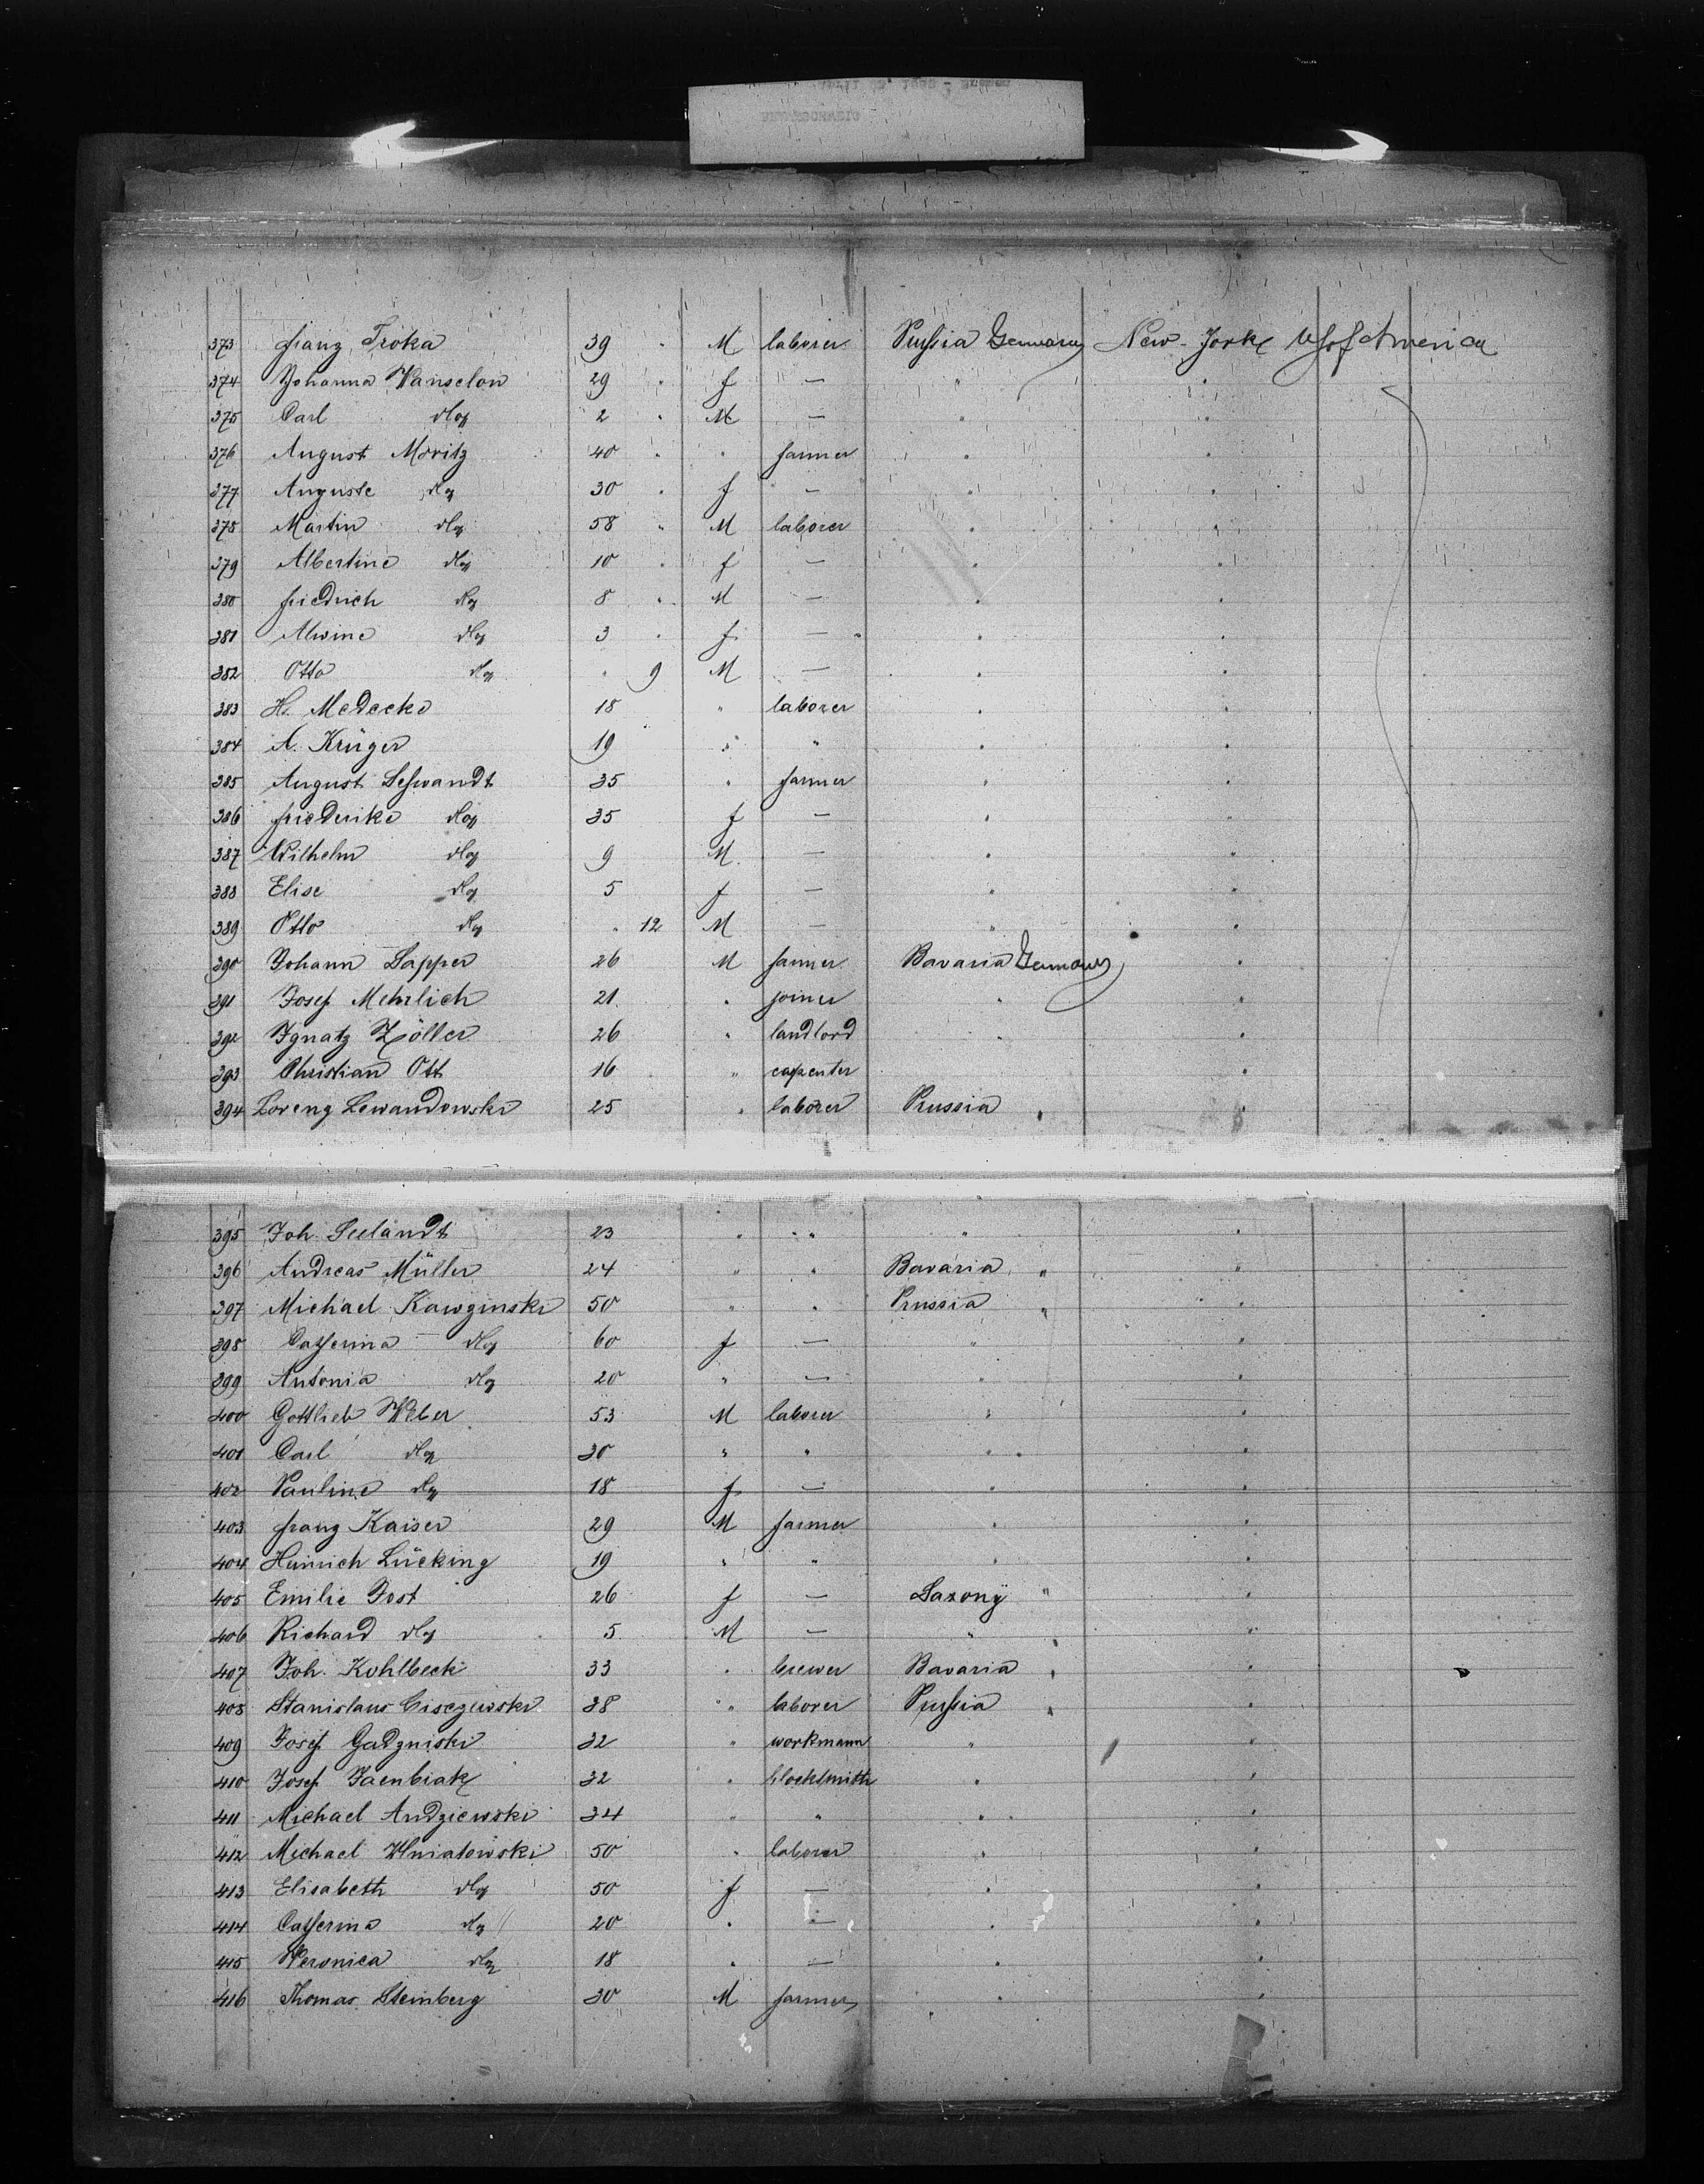 373 Franz Troka 39 " M laborer Prussia Germany New-York US of America
374 Johanna Wanselon 29 " f — " "
375 Carl dto 2 " M — " "
376 August Moritz 40 " " farmer " "
377 Auguste dto 30 " f — " "
378 Martin dto 58 " M laborer " "
379 Albertine dto 10 " f — " "
380 Friedrich dto 8 " M — " "
381 Alwine dto 3 " f — " "
382 Otto dto " 9 M — " "
383 H. Medecke 18 " laborer " "
384 A. Krüger 19 " " " "
385 August Leschwandt 35 " farmer " "
386 Friederike dto 35 f — " "
387 Wilhelm dto 9 M — " "
388 Elise dto 5 f — " "
389 Otto dto " 12 M — " "
390 Johann Sapper 26 M farmer Bavaria Germany "
391 Josef Mehrlich 21 " joiner " "
392 Ignatz Zöller 26 " landlord " "
393 Christian Ott 16 " capenter "
394 Lorenz Lewandowski 25 " laborer Prussia " "
395 Joh. Seelandt 23 " " " "
396 Andreas Müller 24 " " Bavaria " "
397 Michael Kawzinski 50 " " Prussia " "
398 Catherina dto 60 f — " "
399 Antonia dto 20 " — " "
400 Gottlieb Weber 53 M laborer " "
401 Carl dto 30 " " " "
402 Pauline dto 18 f — " "
403 Franz Kaiser 29 M farmer " "
404 Heinrich Lücking 19 " " " "
405 Emilie Jost 26 f — Saxony " "
406 Richard dto 5 M — " " "
407 Joh. Kohlbeck 33 " brewer Bavaria " "
408 Stanislaus Cisczewski 38 " laborer Prussia " "
409 Josef Gadzniski 32 " workmann " "
410 Josef Jaenbiak 32 " blocksmith " "
411 Michael Andziewski 34 " " " "
412 Michael Wniatowski 50 " laborer " "
413 Elisabeth dto 50 f — " "
414 Catherina dto 20 " — " "
415 Weronica dto 18 " — " "
416 Thomas Steinberg 30 M farmer " "